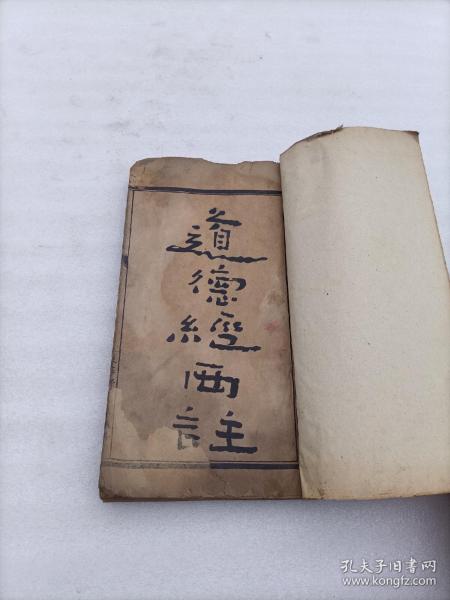 道德經兩註
孔夫子旧书网
www.kongfz.com